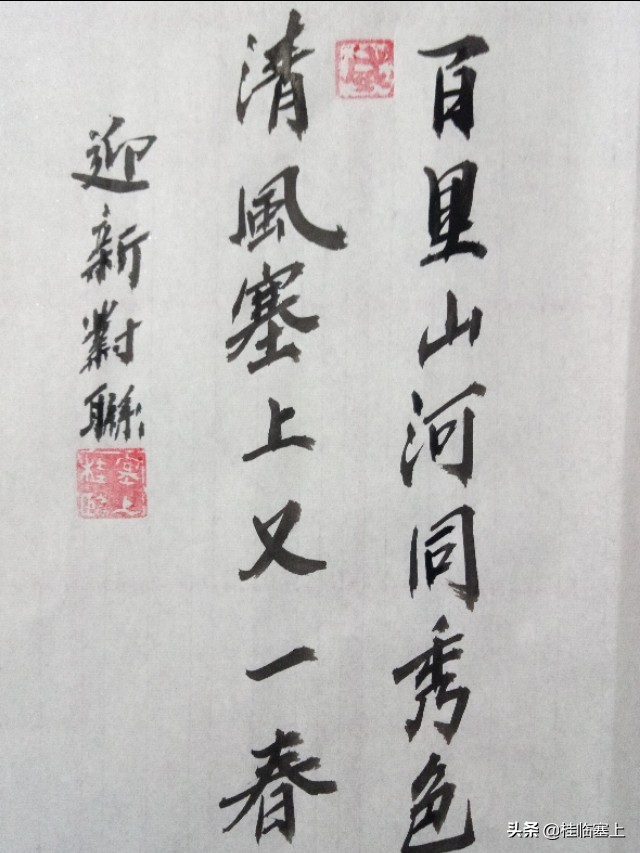 百里山河同秀色
清風塞上又一春
迎新對聯
塞上
桂臨
头条 @桂临塞上